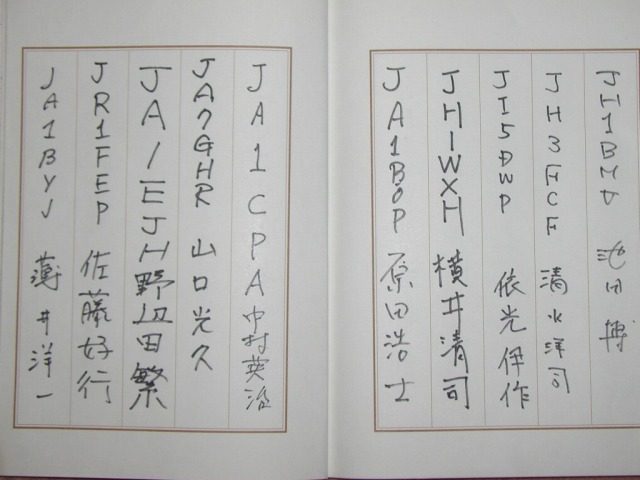 JH1BMU 池田博
JH3FCF 清水洋司
JI5DWP 依光伊作
JH1WXH 横井清司
JA1BOP 原田浩士
JA1CPA 中村英治
JA7GHR 山口光久
JA1EJH 野辺田繁
JR1FEP 佐藤好行
JA1BYJ 薄井洋一